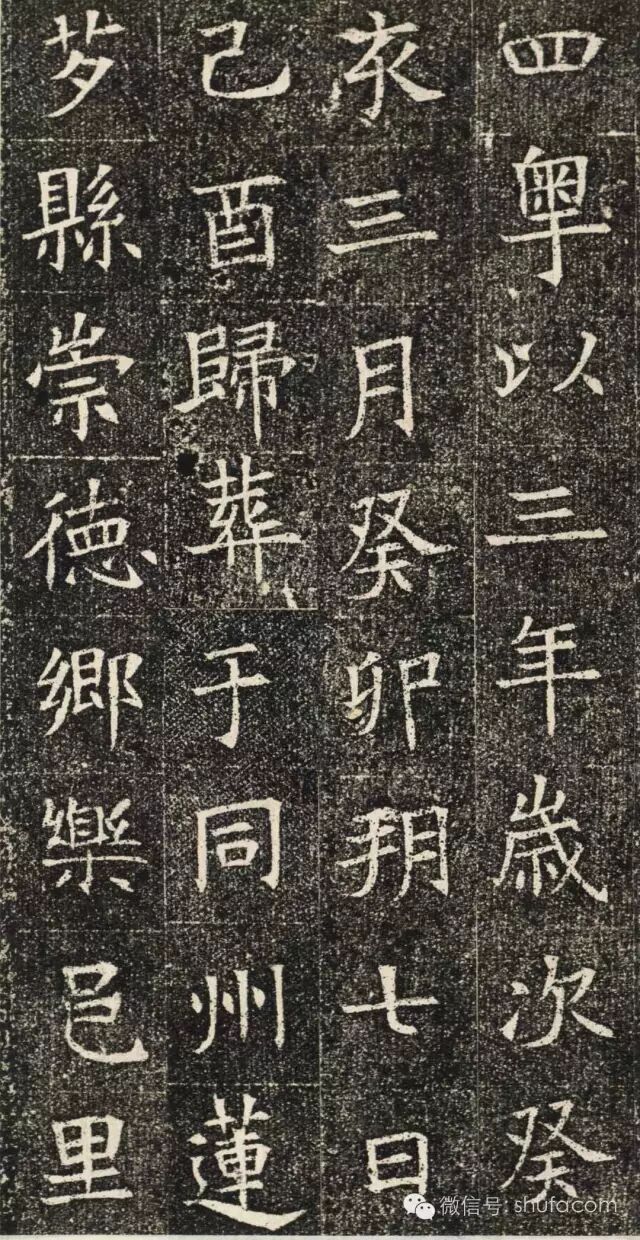 四粵以三年歲次癸
亥三月癸卯朔七日
己酉歸葬于同州蓮
芍縣崇徳鄉樂邑里
微信号: shufacom